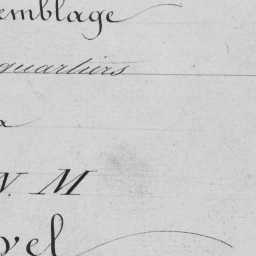 emblage
quartiers
N. M
vel